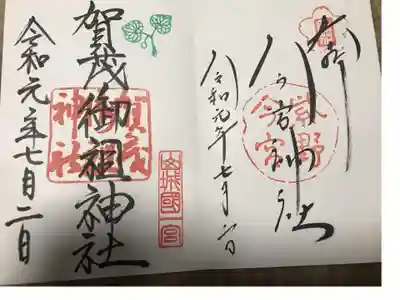 奉拝
今宮神社
紫野
今宮
令和元年七月二日
山城國一宮
賀茂御祖神社
賀茂
神社
令和元年七月二日